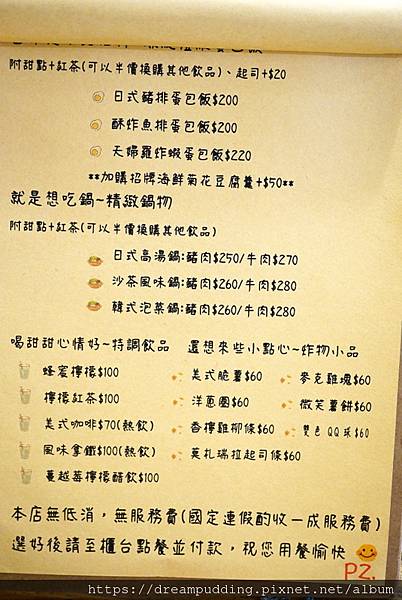 附甜點+紅茶(可以半價換購其他飲品)、起司+$20
日式豬排蛋包飯$200
酥炸魚排蛋包飯$200
天婦羅炸蝦蛋包飯$220
**加購招牌海鮮菊花豆腐羹+$50**
就是想吃鍋~精緻鍋物
附甜點+紅茶(可以半價換購其他飲品)
日式高湯鍋:豬肉$250/牛肉$270
沙茶風味鍋:豬肉$260/牛肉$280
韓式泡菜鍋:豬肉$260/牛肉$280
喝甜甜心情好~特調飲品
蜂蜜檸檬$100
檸檬紅茶$100
美式咖啡$70(熱飲)
風味拿鐵$100(熱飲)
蔓越莓檸檬醋飲$100
還想來些小點心~炸物小品
美式脆薯$60
洋蔥圈$60
香檸雞柳條$60
莫札瑞拉起司條$60
麥克雞塊$60
微笑薯餅$60
雙色QQ球$60
本店無低消，無服務費(國定連假酌收一成服務費)
選好後請至櫃台點餐並付款，祝您用餐愉快
PZ.
https://dreampudding.pixnet.net/album